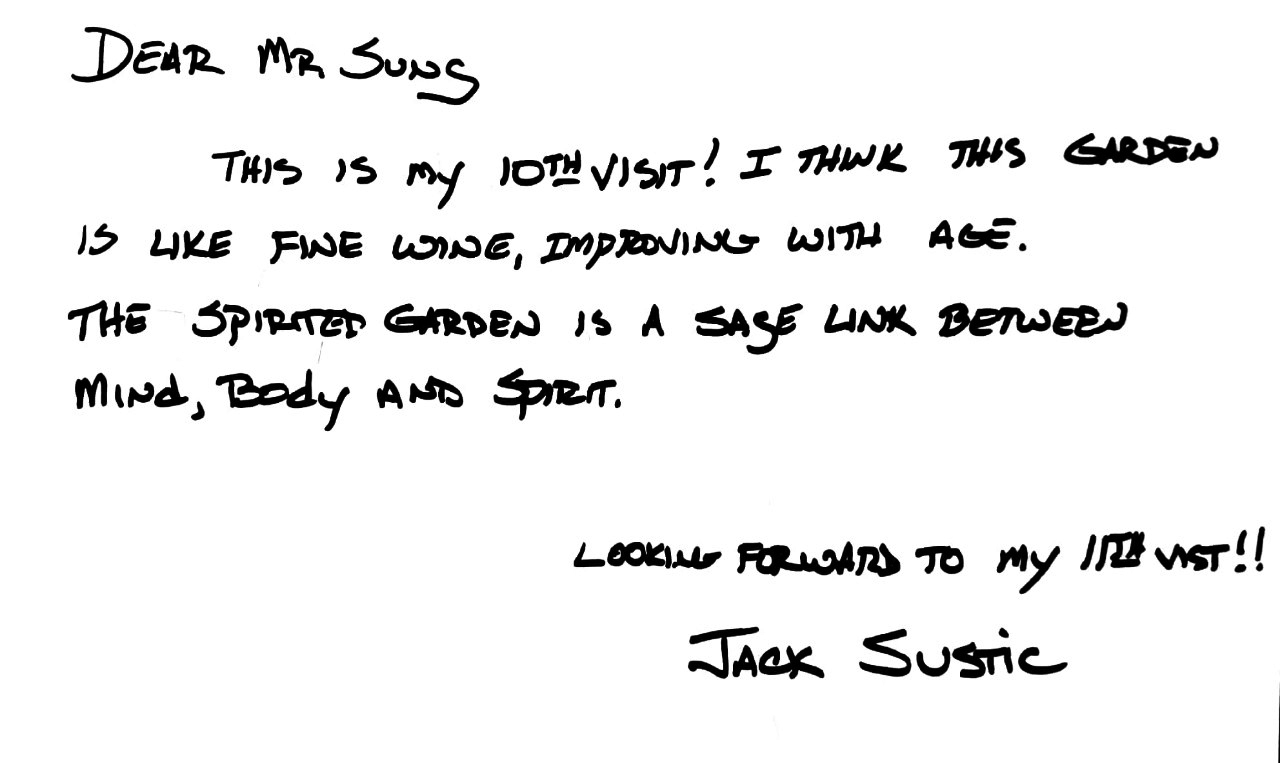 DEAR MR SUNG
THIS IS my 10TH VISIT! I THINK THIS GARDEN
IS LIKE FINE WINE, IMPROVING WITH AGE.
THE SPIRITED GARDEN IS A SAGE LINK BETWEEN
MIND, BODY AND SPIRIT.
LOOKING FORWARD TO my 11TH VIST!!
JACK SUSTIC